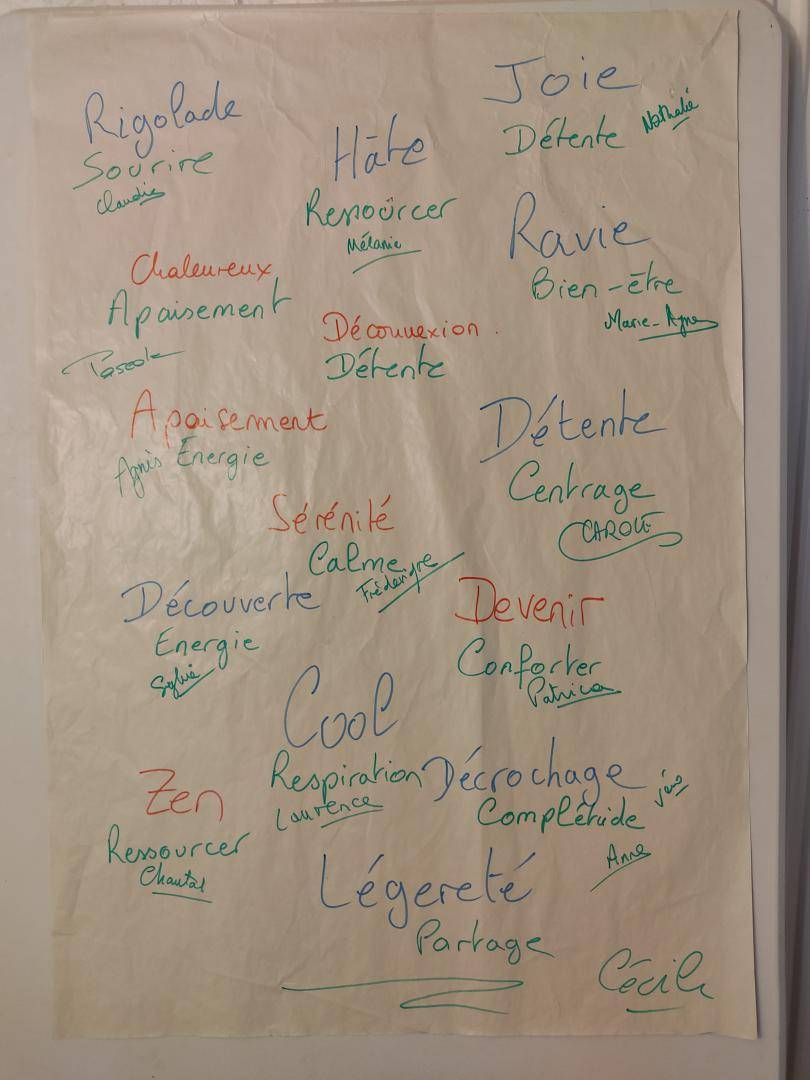 Joie
Détente
Nathalie
Rigolade
Sourire
Claudie
Hâte
Ressourcer
Mélanie
Ravie
Bien-être
Marie-Agnes
Chaleureux
Apaisement
Déconnexion.
Détente
Apaisement
Agnès Énergie
Détente
Centrage
CAROLE
Sérénité
Calme
Frédérique
Découverte
Energie
Sylvie
Devenir
Conforter
Patricia
Cool
Respiration
Laurence
Décrochage
Complétude
Anne
Zen
Ressourcer
Chantal
Légereté
Partage
Cécile